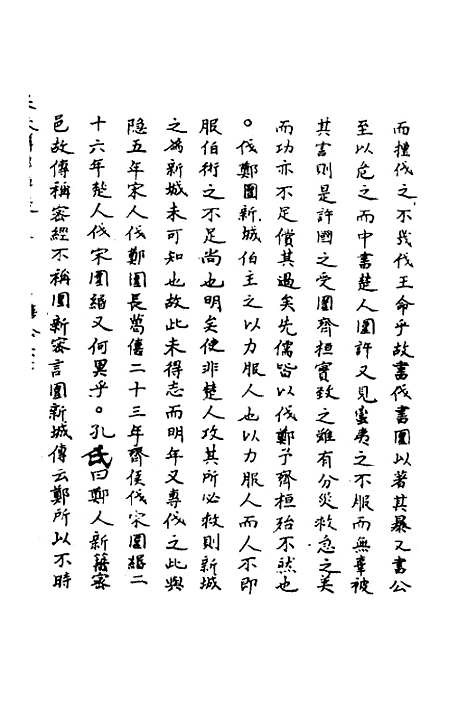 而擅伐之不戕伐王命乎故書伐書圍以著其暴又書公
至以危之而中書楚人圍許又見蠻夷之不服而無辜被
其害則是許國之受圍齊桓實致之雖有分災救急之美
而功亦不足償其過矣先儒皆以伐鄭予齊桓殆不然也
○伐鄭圍新城伯主之以力服人也以力服人而人不即
服伯術之不足尚也明矣使非楚人攻其所必救則新城
之為新城未可知也故此未得志而明年又專伐之此與
隐五年宋人伐鄭圍長葛僖二十三年齊侯伐宋圍緡二
十六年楚人伐宋圍緡又何異乎○孔氏曰鄭人新築密
邑故傳稱密經不稱圍新密言圍新城傳云鄭所以不時